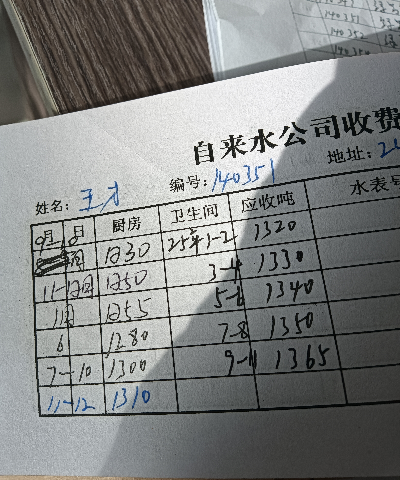 自来水公司收费
姓名: 王才 编号: 140351 地址: 2
月 日 厨房 卫生间 应收吨 水表号
1230 25年1-2 1320
11-12月 1250 3-4 1330
1月 1255 5-6 1340
6 1280 7-8 1350
7-10 1300 9-11 1365
11-12 1310
140351
140352